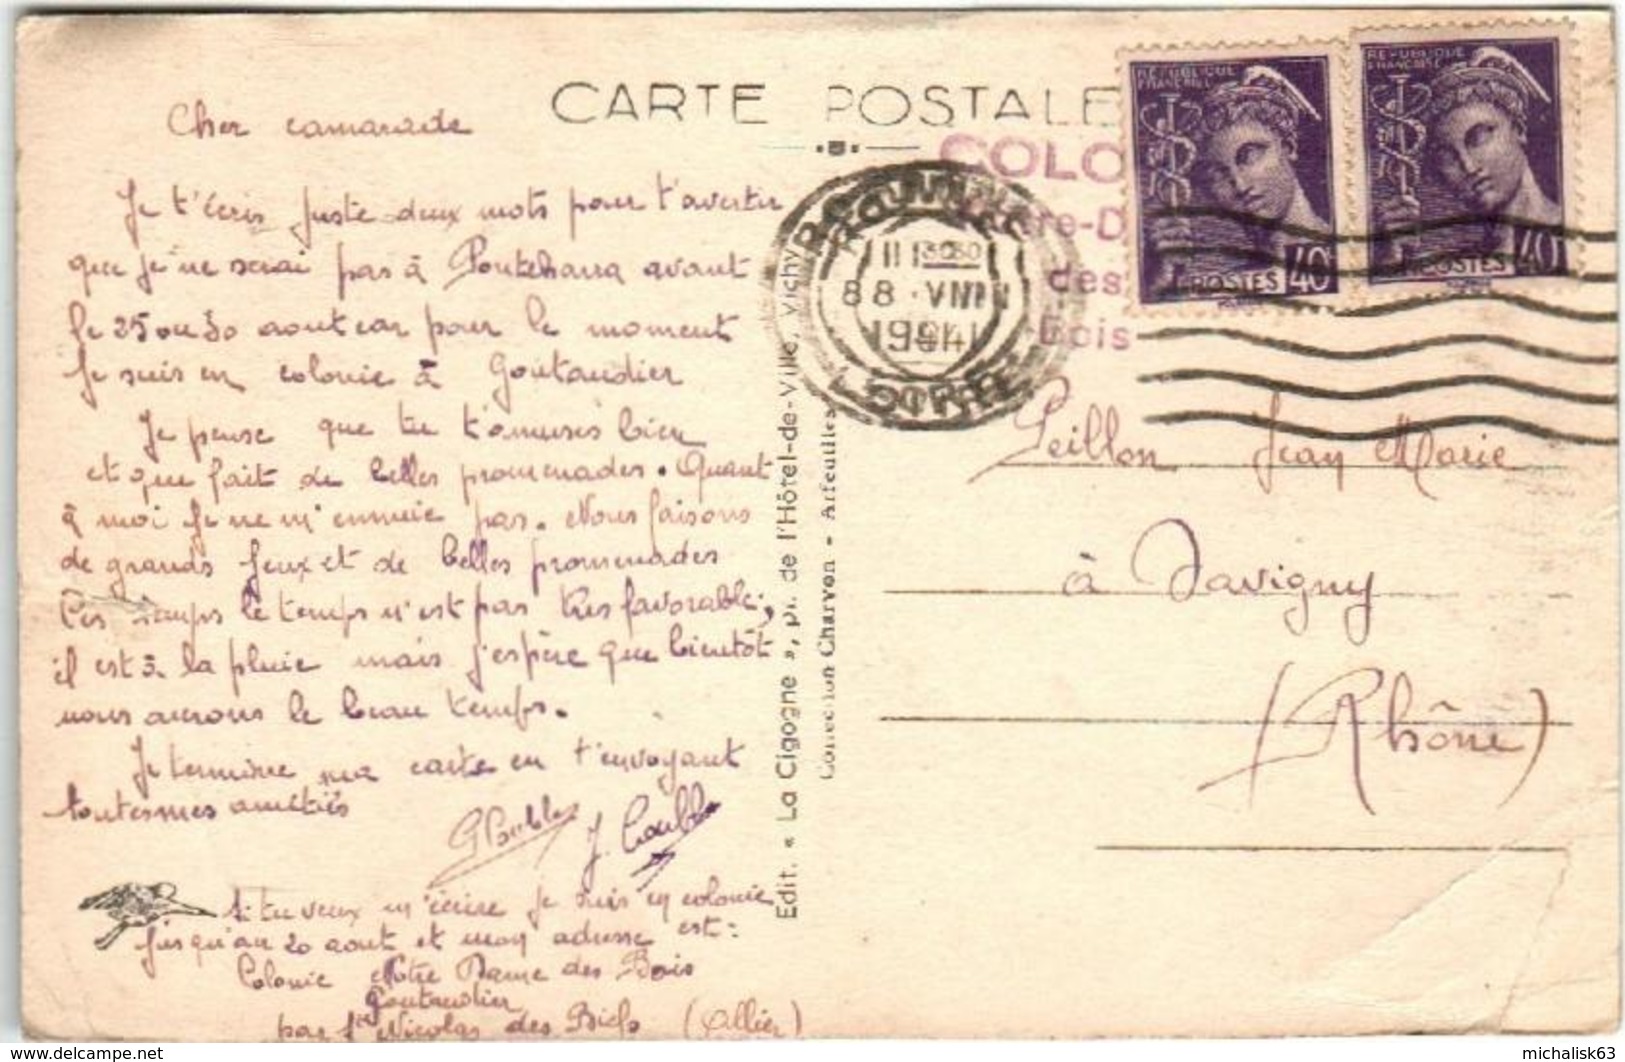 CARTE POSTALE
Cher camarade
Je t'écris juste deux mots pour t'avertir
que je ne serai pas à Pontcharra avant
le 25 ou 30 aout car pour le moment
Je suis en colonie à Goutaudier
Je pense que tu t'amuses bien
et que fait de belles promenades. Quant
à moi Je ne m'ennuie pas. Nous faisons
de grands feux et de belles promenades
Ces temps le temps n'est pas très favorable;
il est à la pluie mais j'espère que bientôt
nous aurons le beau temps.
Je termine ma carte en t'envoyant
toutes mes amitiés
Si tu veux m'écrire je suis en colonie
jusqu'au 20 aout et mon adresse est:
Colonie Notre Dame des Bois
Goutaudier
par St Nicolas des Biefs (Allier)
Edit. « La Cigogne », pl. de l'Hôtel-de-Ville, Vichy
Collection Charvon - Arfeuilles
COLO
re-D
des
Bois
REPUBLIQUE
FRANÇAISE
POSTES 40
REPUBLIQUE
FRANÇAISE
POSTES 40
VIII
LOIRE
Peillon Jean Marie
à Savigny
(Rhône)
michalisk63
www.delcampe.net